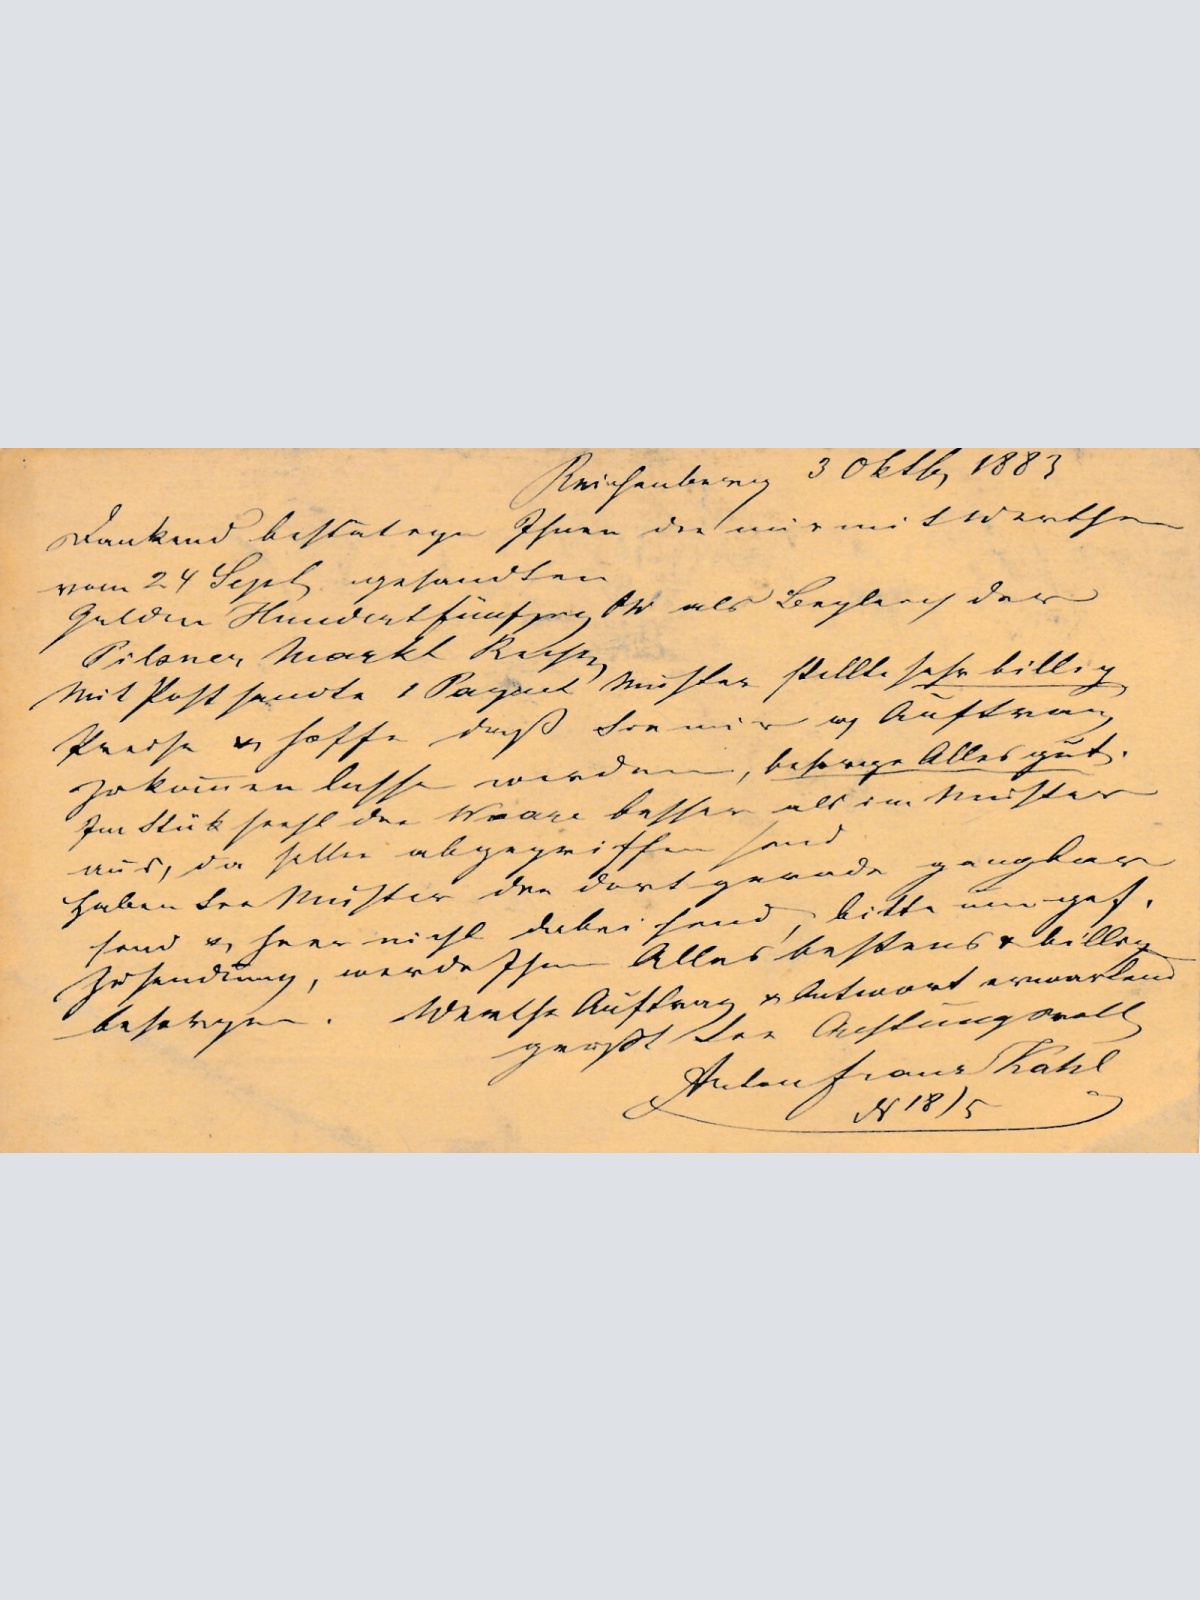 Reichenberg 3 Oktb, 1883
Dankend bestätege Ihnen die mir mit Werthen
vom 24 Sept gesandten
Gulden Hundertfünfzig als Begleich der
Pilsner Markt Rechg
Mit Post sandte 1 Paquet Muster stellte sehr billig
Preise & hoffe daß Sie mir Auftrag
zukom̅en lassen werden, besorge Alles gut.
Im Stük sieht die Waare besser als im Muster
aus, da selbe abgegriffen sind
Haben Sie Muster die dort gerade gangbar
sind & hier nicht dabei sind, bitte um gef.
Zusendung, werde Ihnen Alles bestens & billig
besorgen. Werthe Auftrag & Antwort erwartend
grüßt Sie Achtungsvoll
Anton Franz
N 18/5